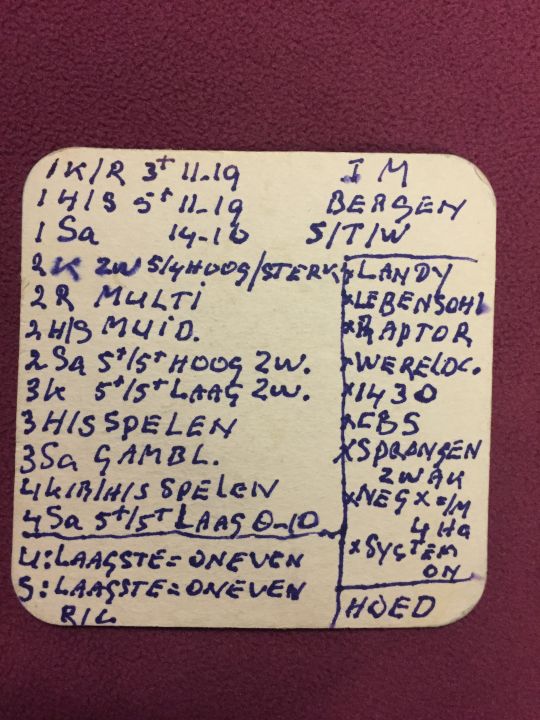 1K/R 3+ 11-19 I M
1H/S 5+ 11-19 BERGEN
1Sa 14-16 S/T/W
2K ZW 5/4 HOOG/STERK
2R MULTI
2H/S MUID.
2Sa 5+/5+ HOOG ZW.
3K 5+/5+ LAAG ZW.
3H/S SPELEN
3Sa GAMBL.
4K/R/H/S SPELEN
4Sa 5+/5+ LAAG 0-10
U: LAAGSTE = ONEVEN
S: LAAGSTE = ONEVEN
R/L
x LANDY
x LEBENSOHL
x RAPTOR
x WERELDC.
x 1430
x CBS
x SPRONGEN
ZWAK
x NEG X = /M
4 HO
x SYSTEM
ON
HOED